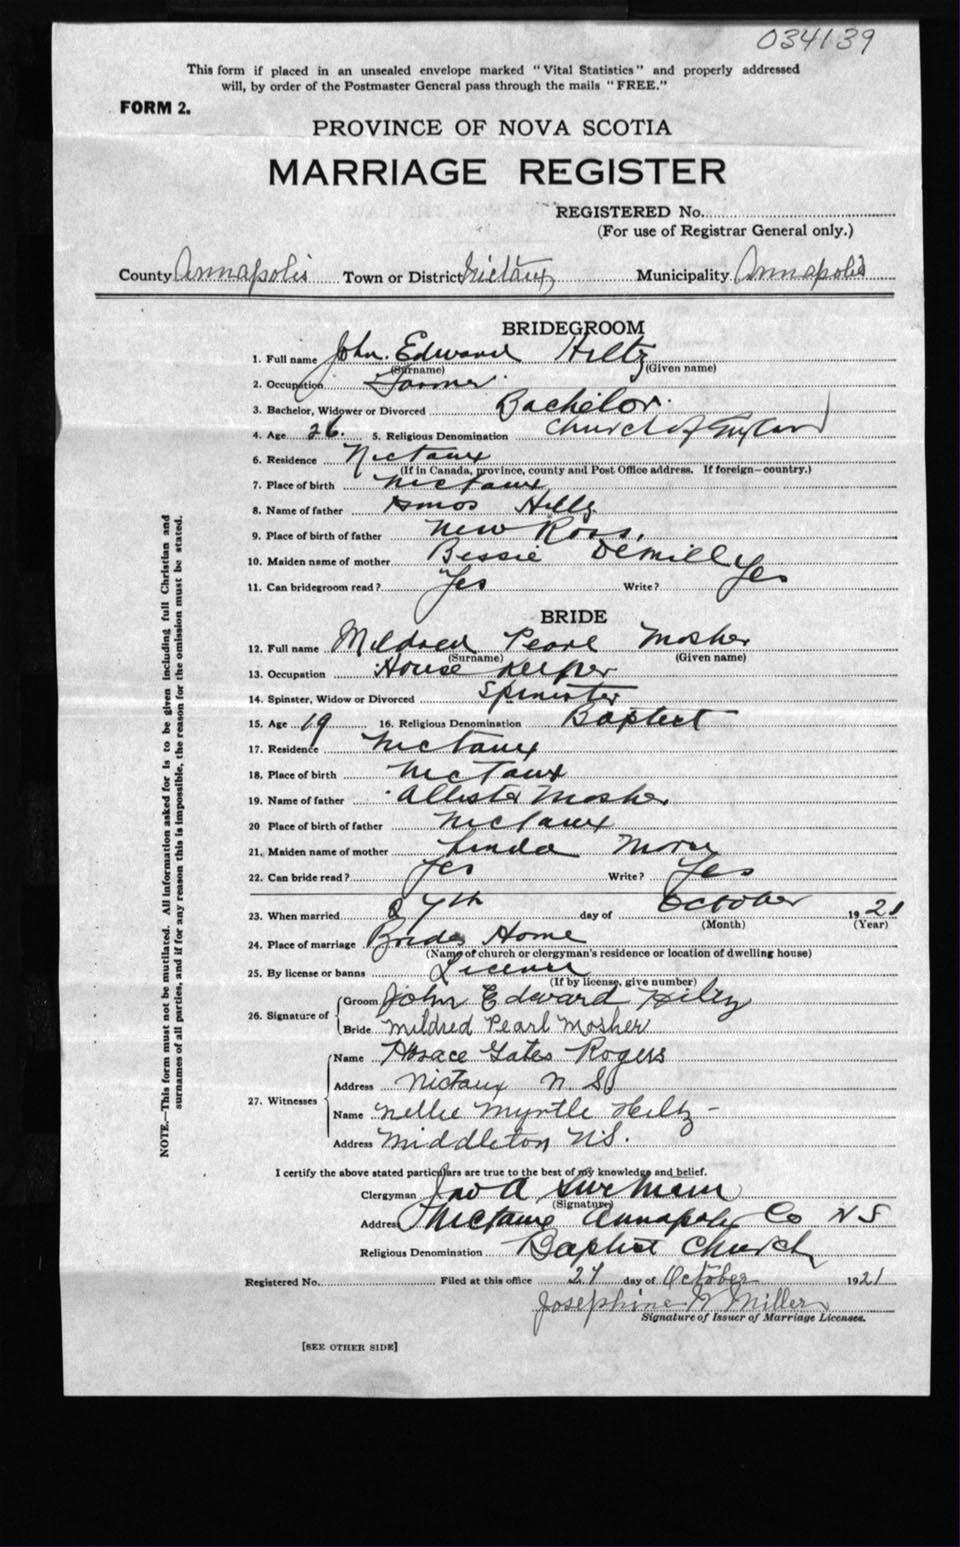 034139
This form if placed in an unsealed envelope marked "Vital Statistics" and properly addressed
will, by order of the Postmaster General pass through the mails "FREE."
FORM 2.
PROVINCE OF NOVA SCOTIA
MARRIAGE REGISTER
REGISTERED No.
(For use of Registrar General only.)
County Annapolis Town or District Nictaux Municipality Annapolis
BRIDEGROOM
1. Full name John Edward Hiltz
(Surname) (Given name)
2. Occupation Farmer
3. Bachelor, Widower or Divorced Bachelor.
4. Age 26. 5. Religious Denomination Church of England
6. Residence Nictaux
(If in Canada, province, county and Post Office address. If foreign—country.)
7. Place of birth Nictaux
8. Name of father Amos Hiltz
9. Place of birth of father New Ross.
10. Maiden name of mother Bessie Demill
11. Can bridegroom read? Yes Write? Yes
BRIDE
12. Full name Mildred Pearl Mosher
(Surname) (Given name)
13. Occupation House Keeper
14. Spinster, Widow or Divorced Spinister
15. Age 19 16. Religious Denomination Baptist
17. Residence Nictaux
18. Place of birth Nictaux
19. Name of father Allister Mosher
20 Place of birth of father Nictaux
21. Maiden name of mother Linda
22. Can bride read? Yes Write? Yes
23. When married 27th day of October 1921
(Month) (Year)
24. Place of marriage Brides Home
(Name of church or clergyman's residence or location of dwelling house)
25. By license or banns License
(If by license, give number)
26. Signature of
Groom John Edward Hiltz
Bride Mildred Pearl Mosher
27. Witnesses
Name Horace Gates Rogers
Address Nictaux N S
Name Nellie Myrtle Hiltz -
Address Middleton N.S.
I certify the above stated particulars are true to the best of my knowledge and belief.
Clergyman
(Signature)
Address Nictaux Annapolis Co N S
Religious Denomination Baptist Church
Registered No. Filed at this office 27 day of October 1921
Josephine Miller
Signature of Issuer of Marriage Licenses.
[SEE OTHER SIDE]
NOTE.—This form must not be mutilated. All information asked for is to be given including full Christian and
surnames of all parties, and if for any reason this is impossible, the reason for the omission must be stated.